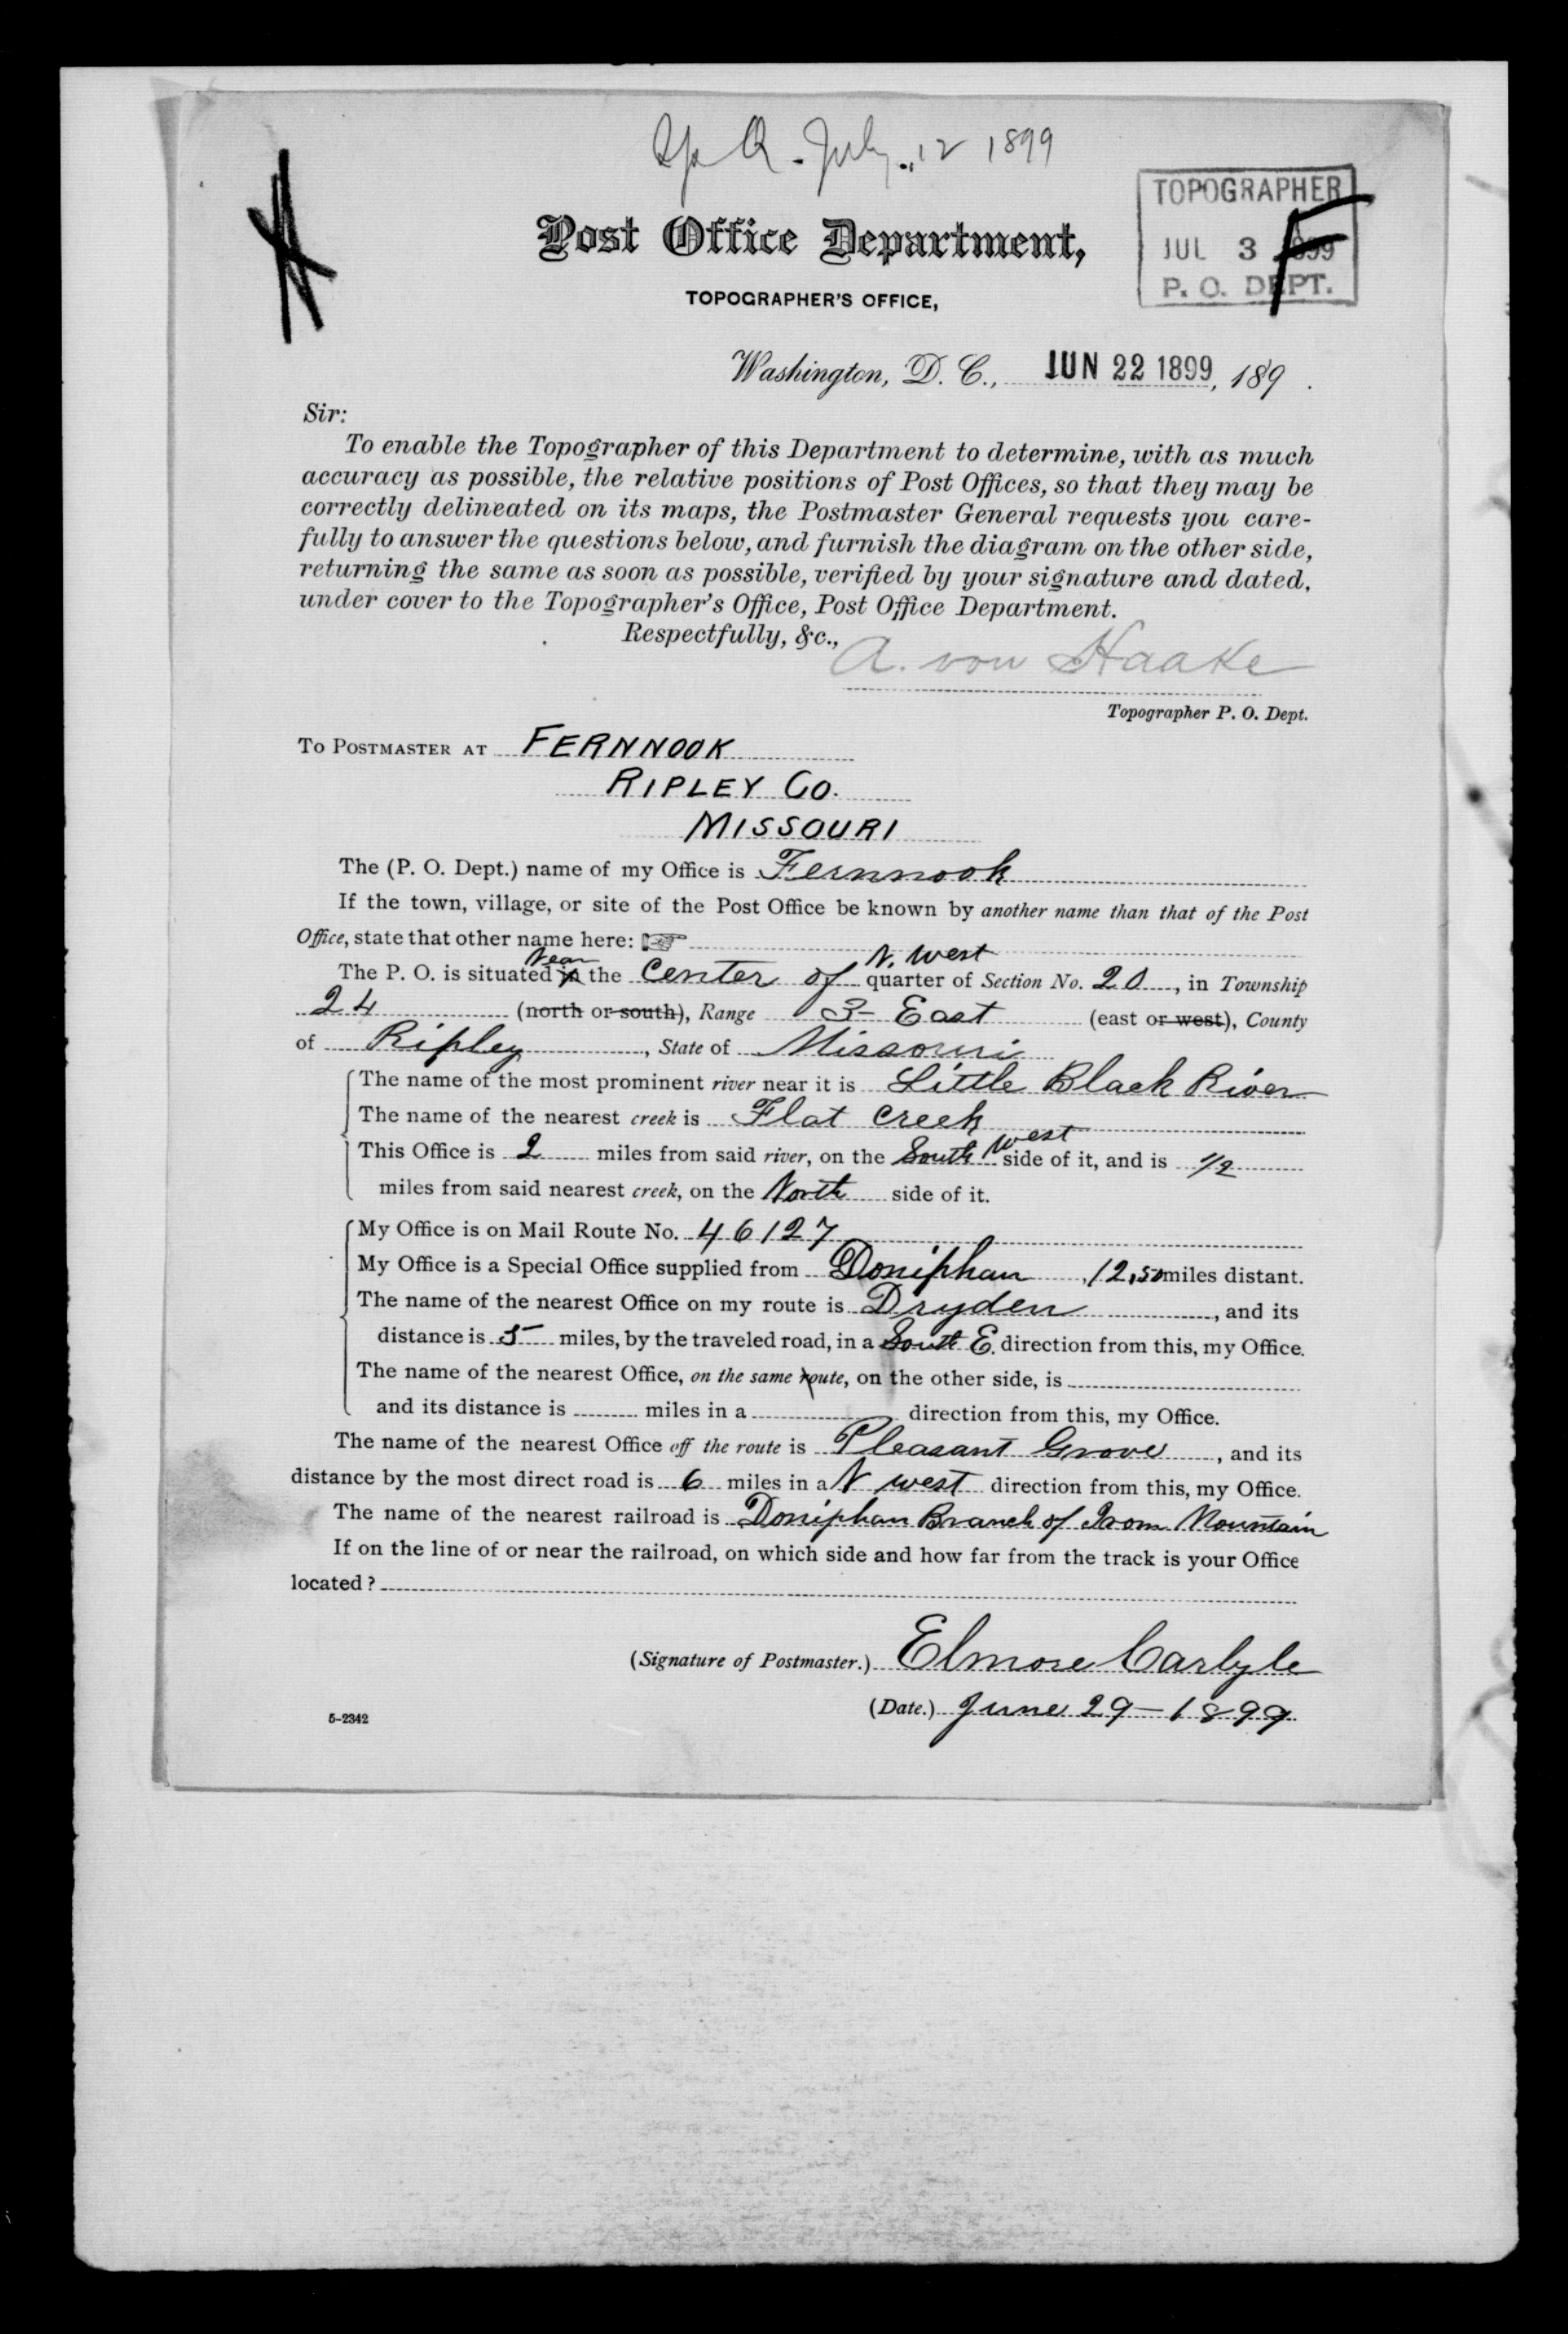 July 12 1899
TOPOGRAPHER
JUL 3 1899
P. O. DEPT.
F
Post Office Department,
TOPOGRAPHER'S OFFICE,
Washington, D. C., JUN 22 1899, 189 .
Sir:
To enable the Topographer of this Department to determine, with as much
accuracy as possible, the relative positions of Post Offices, so that they may be
correctly delineated on its maps, the Postmaster General requests you care-
fully to answer the questions below, and furnish the diagram on the other side,
returning the same as soon as possible, verified by your signature and dated,
under cover to the Topographer's Office, Post Office Department.
Respectfully, &c.,
A. von Haake
Topographer P. O. Dept.
To Postmaster at FERNNOOK
RIPLEY CO.
MISSOURI
The (P. O. Dept.) name of my Office is Fernnook
If the town, village, or site of the Post Office be known by another name than that of the Post
Office, state that other name here: ☞
Near N. West
The P. O. is situated in the Center of quarter of Section No. 20, in Township
24 (north or south), Range 3- East (east or west), County
of Ripley, State of Missouri
The name of the most prominent river near it is Little Black River
The name of the nearest creek is Flat Creek
This Office is 2 miles from said river, on the South West side of it, and is 1/2
miles from said nearest creek, on the North side of it.
My Office is on Mail Route No. 46127
My Office is a Special Office supplied from Doniphan, 12,50 miles distant.
The name of the nearest Office on my route is Dryden, and its
distance is 5 miles, by the traveled road, in a South E. direction from this, my Office.
The name of the nearest Office, on the same route, on the other side, is
and its distance is miles in a direction from this, my Office.
The name of the nearest Office off the route is Pleasant Grove, and its
distance by the most direct road is 6 miles in a N west direction from this, my Office.
The name of the nearest railroad is Doniphan Branch of Iron Mountain
If on the line of or near the railroad, on which side and how far from the track is your Office
located?
(Signature of Postmaster.) Elmore Carlyle
(Date.) June 29-1899
5-2342